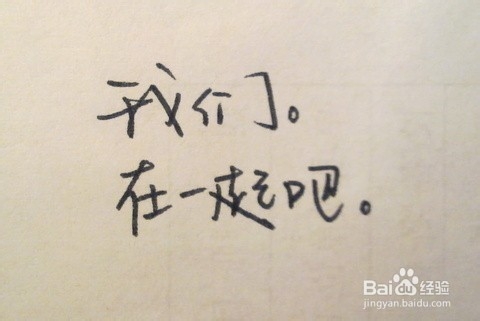 我们。
在一起吧。
Baidu经验
jingyan.baidu.com